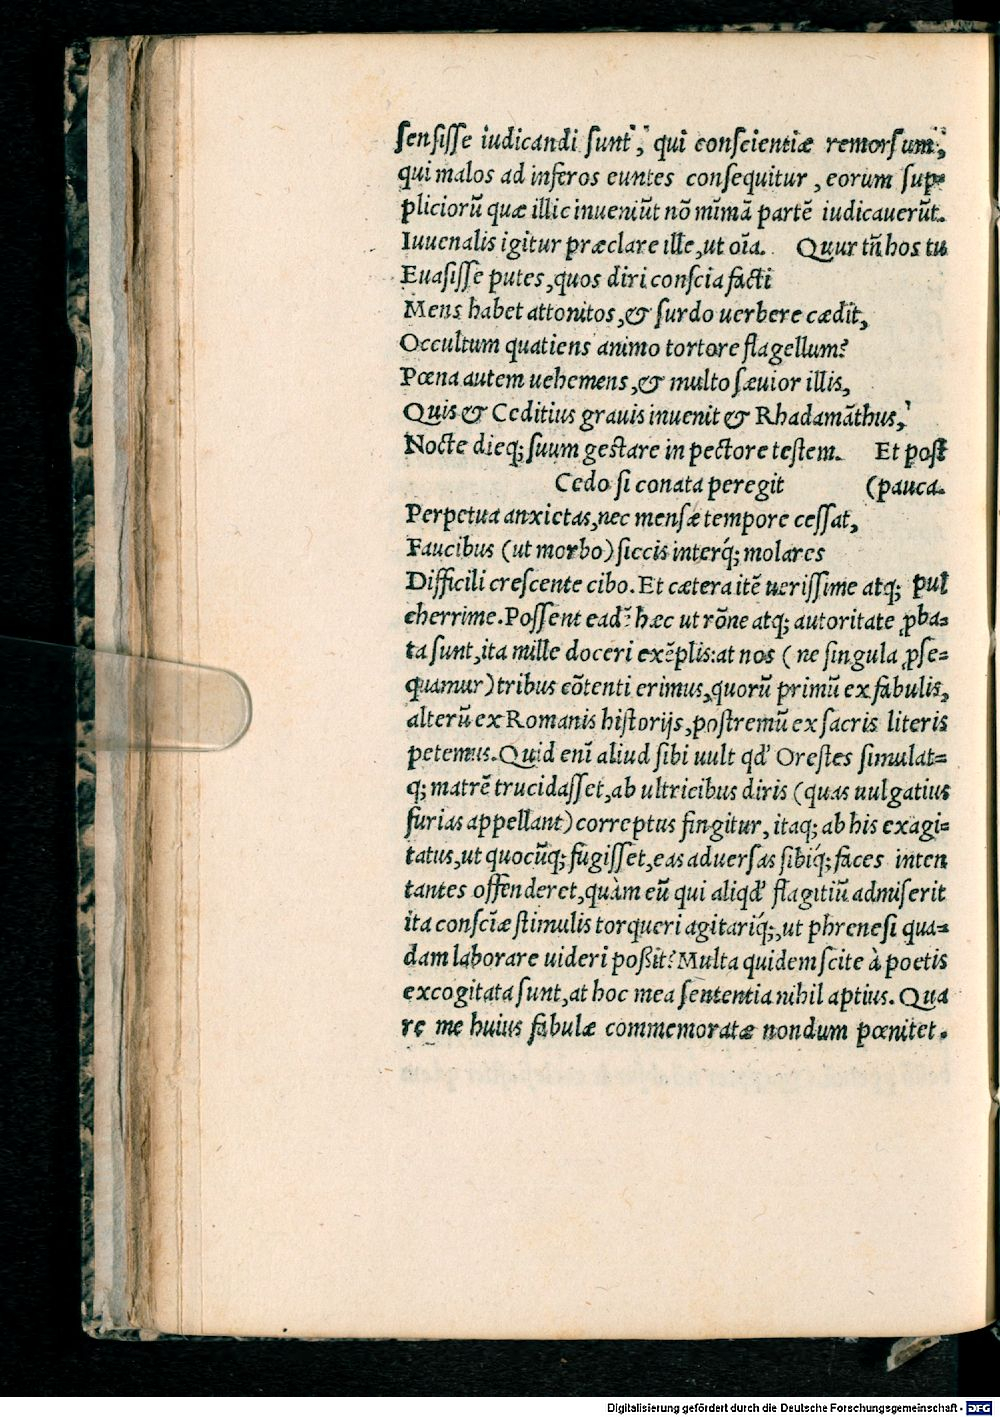 ſenſiſſe iudicandi ſunt, qui conſcientiæ remorſum,
qui malos ad inferos euntes conſequitur, eorum ſup-
pliciorū quæ illic inueniūt nō mīmā partē iudicauerūt.
Iuuenalis igitur præclare ille, ut oīa. Quur tn̄ hos tu
Euaſiſſe putes, quos diri conſcia facti
Mens habet attonitos, & ſurdo uerbere cædit,
Occultum quatiens animo tortore flagellum?
Pœna autem uehemens, & multo ſæuior illis,
Quis & Ceditius grauis inuenit & Rhadamāthus,
Nocte dieq; ſuum geſtare in pectore teſtem. Et poſt
Cedo ſi conata peregit (pauca.
Perpetua anxietas, nec menſæ tempore ceſſat,
Faucibus (ut morbo) ſiccis interq́; molares
Difficili creſcente cibo. Et cætera itē ueriſſime atq; pul
cherrime. Poſſent ead? hæc ut rōne atq; autoritate ꝓba-
ta ſunt, ita mille doceri exēplis: at nos (ne ſingula ꝓſe-
quamur) tribus cōtenti erimus, quorū primū ex fabulis,
alterū ex Romanis hiſtorijs, poſtremū ex ſacris literis
petemus. Quid enī aliud ſibi uult qd' Oreſtes ſimulat-
q; matrē trucidaſſet, ab ultricibus diris (quas uulgatius
furias appellant) correptus fingitur, itaq; ab his exagi-
tatus, ut quocūq; fugiſſet, eas aduerſas ſibiq́; faces inten
tantes offenderet, quàm eū qui aliqd' flagitiū admiſerit
ita conſcīæ ſtimulis torqueri agitariq́;, ut phreneſi qua-
dam laborare uideri poßit? Multa quidem ſcite à poetis
excogitata ſunt, at hoc mea ſententia nihil aptius. Qua
re me huius fabulæ commemoratæ nondum pœnitet.
Digitalisierung gefördert durch die Deutsche Forschungsgemeinschaft - DFG